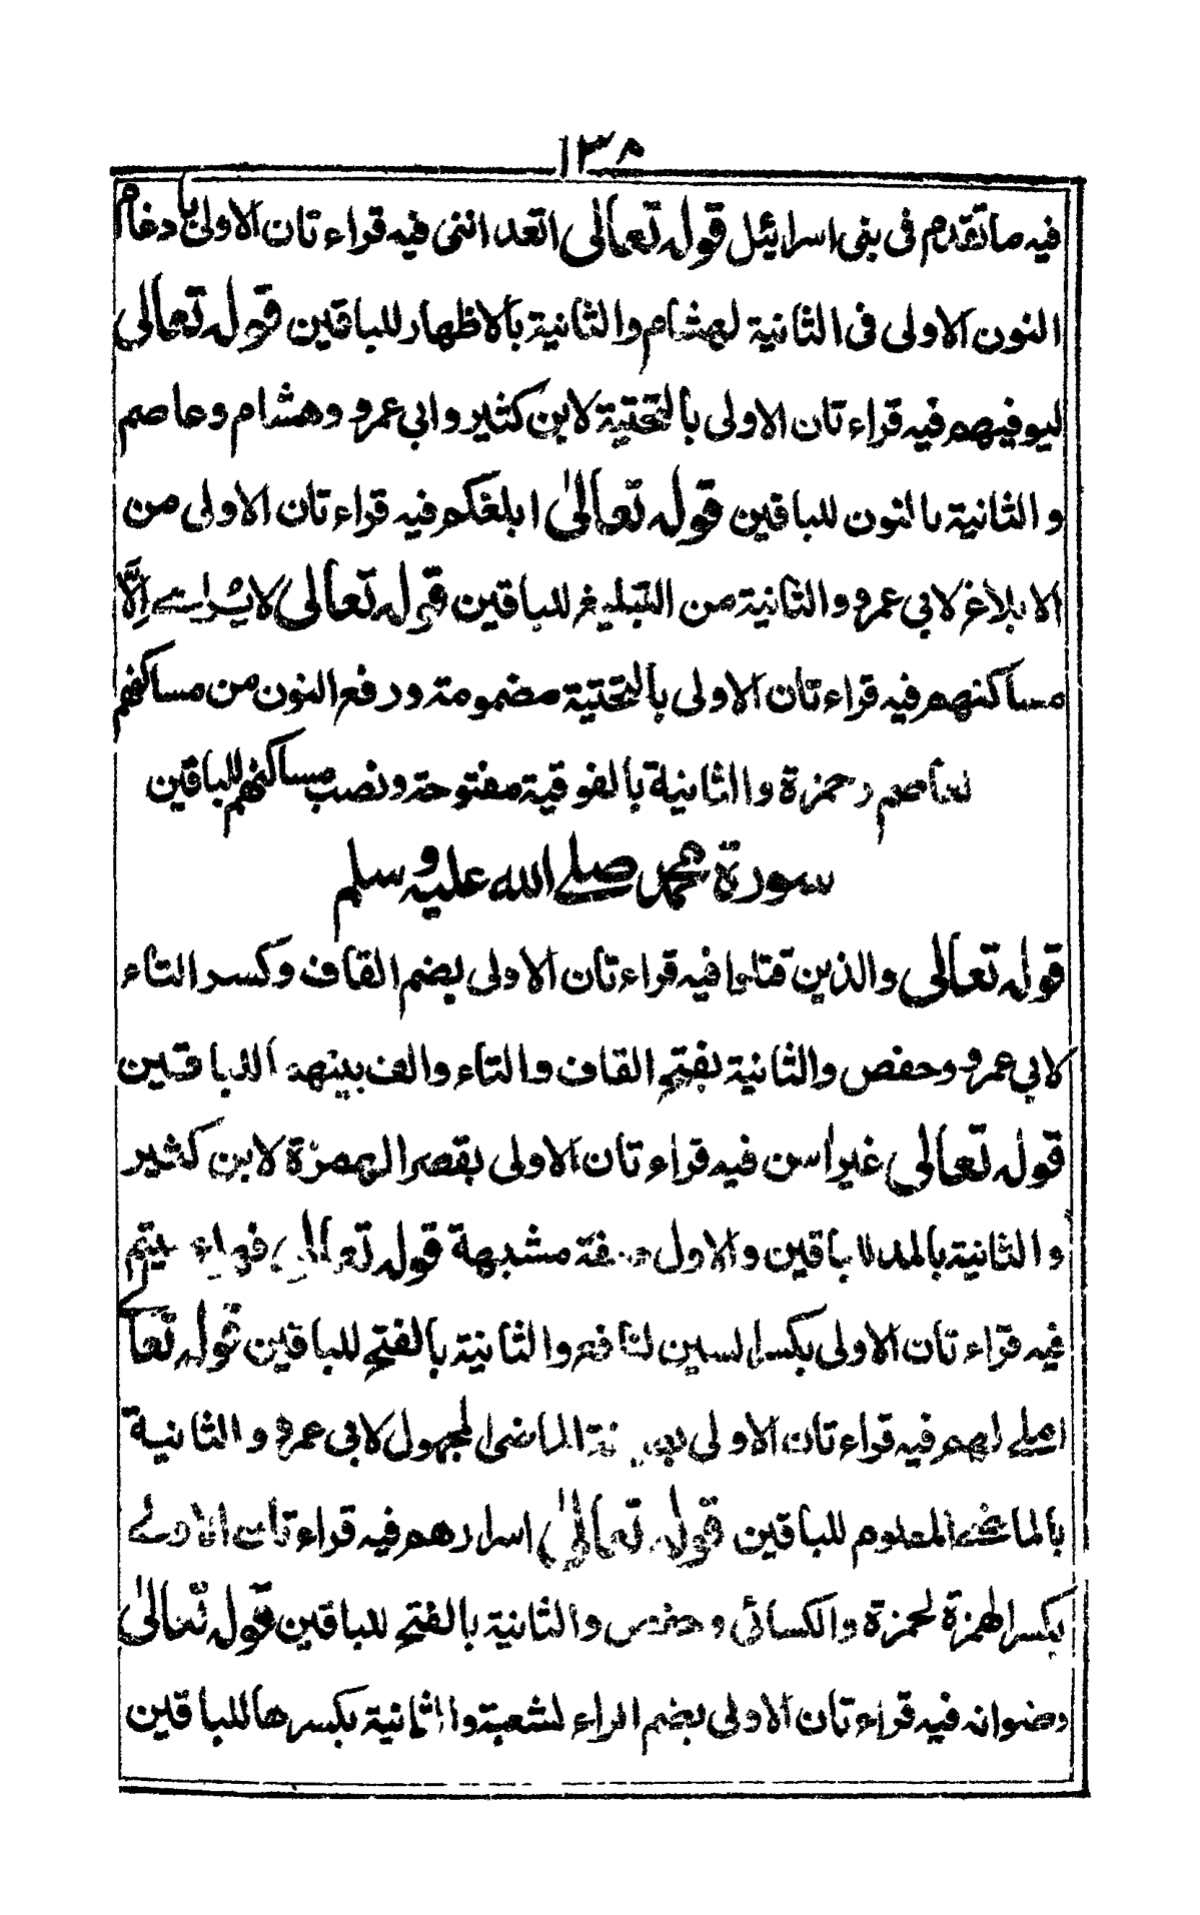 ١٣٨
فيه ما تقدم فى بنى اسرائيل قوله تعالى اتعداننى فيه قراءتان الاولى بادغام
النون الاولى فى الثانية لهشام والثانية بالاظهار للباقين قوله تعالى
ليوفيهم فيه قراءتان الاولى بالتحتية لابن كثير وابى عمرو وهشام وعاصم
والثانية بالنون للباقين قوله تعالىٰ ابلغكم فيه قراءتان الاولى من
الابلاغ لابى عمرو والثانية من التبليغ للباقين قوله تعالى لا يرىے اِلَّا
مساكنهم فيه قراءتان الاولى بالتحتية مضمومة ورفع النون من مساكنهم
لعاصم وحمزة والثانية بالفوقية مفتوحة ونصب مساكنهم للباقين
سورة محمد صلے الله عليه وسلم
قوله تعالى والذين قتلوا فيه قراءتان الاولى بضم القاف وكسر التاء
لابى عمرو وحفص والثانية بفتح القاف والتاء والف بينهما للباقين
قوله تعالى غير اسن فيه قراءتان الاولى بقصر الهمزة لابن كثير
والثانية بالمد للباقين والاول صفة مشبهة قوله تعالى فهل عسيتم
فيه قراءتان الاولى بكسر السين لنافع والثانية بالفتح للباقين قوله تعالے
املے لهم فيه قراءتان الاولى بصيغة الماضى المجهول لابى عمرو والثانية
بالماضے المعلوم للباقين قوله تعالىٰ اسرارهم فيه قراءتان الاولے
بكسر الهمزة لحمزة والكسائى وحفص والثانية بالفتح للباقين قوله تعالىٰ
رضوانه فيه قراءتان الاولى بضم الراء لشعبة والثانية بكسرها للباقين